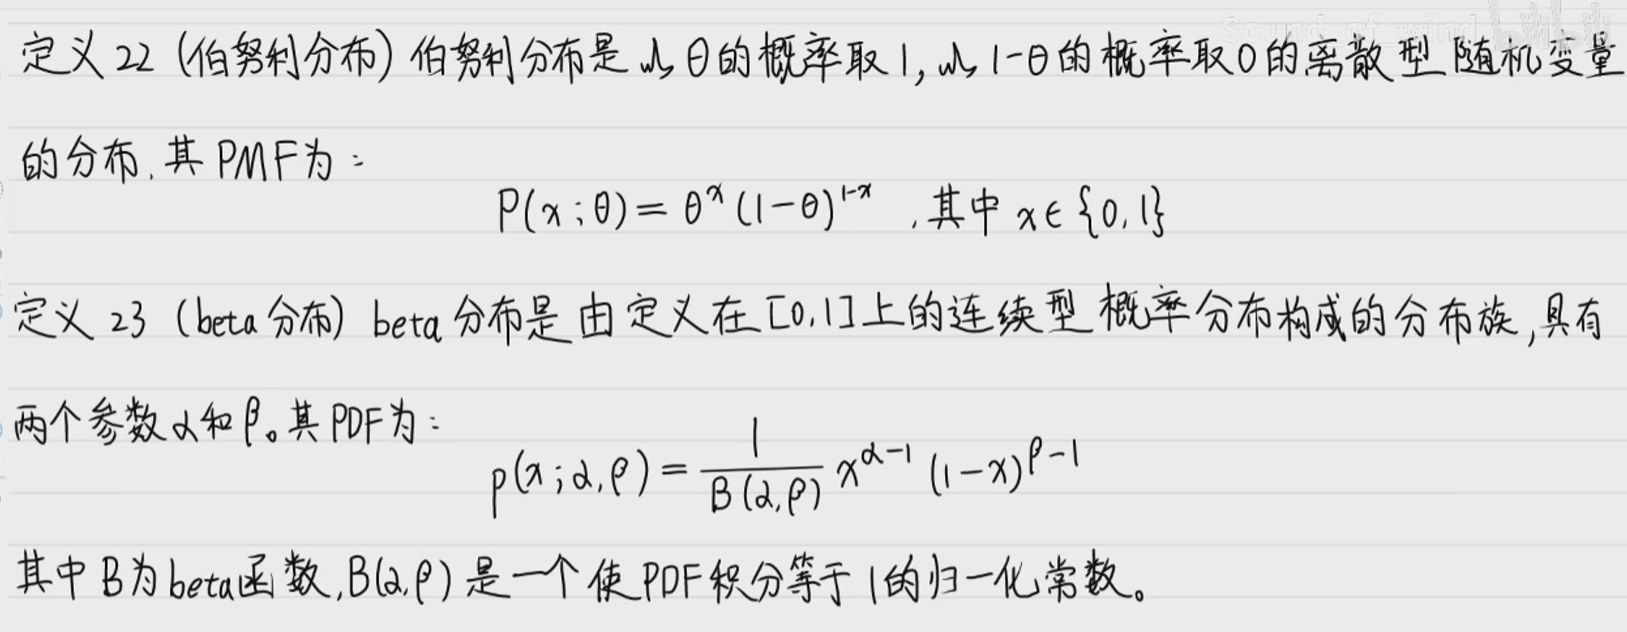 Sound of wind
定义22（伯努利分布）伯努利分布是以θ的概率取1,以1-θ的概率取0的离散型随机变量
的分布.其PMF为：
P(x;θ)=θ^x(1-θ)^{1-x} ,其中 x∈{0,1}
定义23（beta分布）beta分布是由定义在[0,1]上的连续型概率分布构成的分布族,具有
两个参数α和β。其PDF为：
p(x;α,β)=\frac{1}{B(α,β)} x^{α-1} (1-x)^{β-1}
其中B为beta函数,B(α,β)是一个使PDF积分等于1的归一化常数。